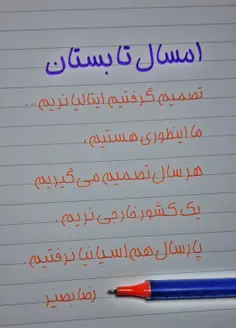 امسال تابستان
تصمیم گرفتیم ایتالیا نریم...
ما اینطوری هستیم،
هر سال تصمیم می گیریم
یک کشور خارجی نریم.
پارسال هم اسپانیا نرفتیم.
رضا بصیر